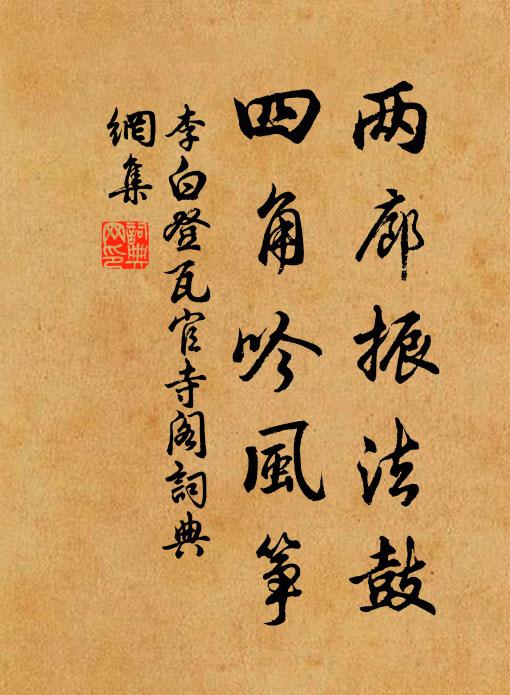 两廊振法鼓
四角吟风筝
李白登瓦官寺阁詞典
網集
詞典網印